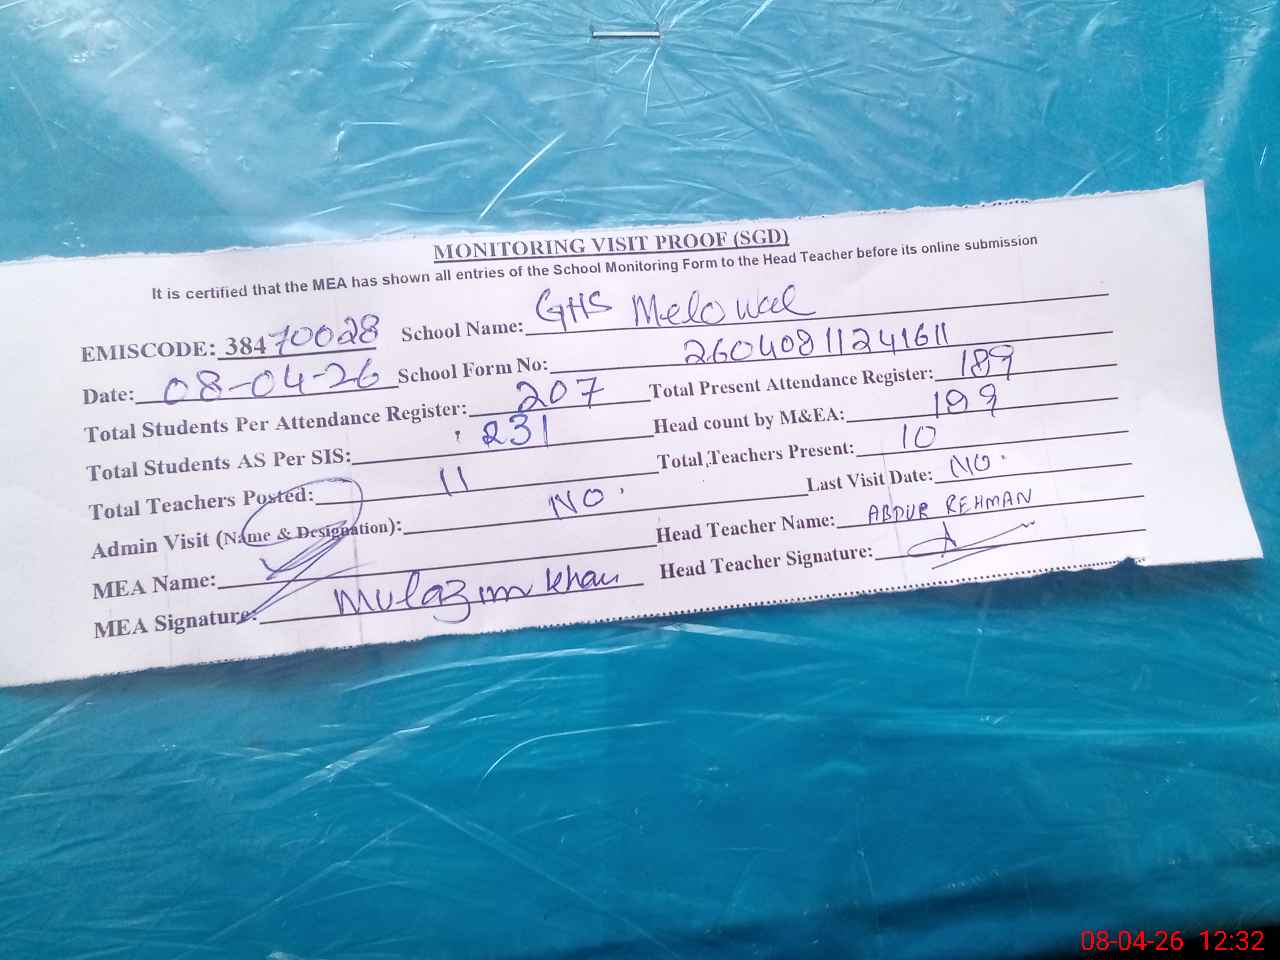 MONITORING VISIT PROOF (SGD)
It is certified that the MEA has shown all entries of the School Monitoring Form to the Head Teacher before its online submission
EMISCODE: 38470028 School Name: GHS Melowal
Date: 08-04-26 School Form No: 26040811241611
Total Students Per Attendance Register: 207 Total Present Attendance Register: 189
Total Students AS Per SIS: 231 Head count by M&EA: 199
Total Teachers Posted: 11 Total Teachers Present: 10
Admin Visit (Name & Designation): NO. Last Visit Date: NO.
MEA Name: Head Teacher Name: ABDUR REHMAN
MEA Signature: Mulazim khan Head Teacher Signature:
08-04-26 12:32